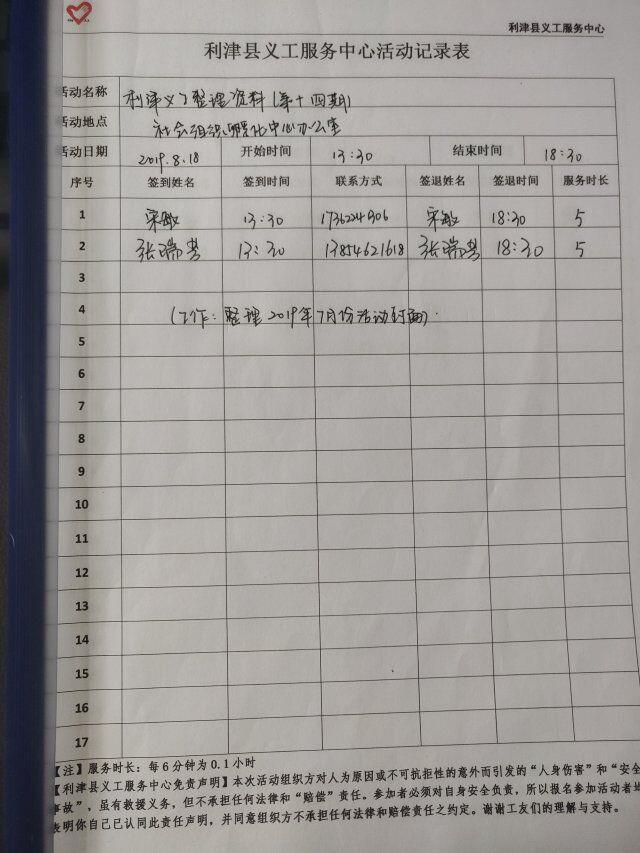 利津县义工服务中心
利津县义工服务中心活动记录表
活动名称 利津义工整理资料(第十四期)
活动地点 社会组织孵化中心办公室
活动日期 2019.8.18 开始时间 13:30 结束时间 18:30
序号 签到姓名 签到时间 联系方式 签退姓名 签退时间 服务时长
1 宋敏 13:30 宋敏 18:30 5
2 13:30 13854621618 18:30 5
3
4 (工作:整理2019年7月份活动封面)
5
6
7
8
9
10
11
12
13
14
15
16
17
【注】服务时长:每6分钟为0.1小时
【利津县义工服务中心免责声明】本次活动组织方对人为原因或不可抗拒性的意外而引发的“人身伤害”和“安全
事故”,虽有救援义务,但不承担任何法律和“赔偿”责任。参加者必须对自身安全负责,所以报名参加活动者均
表明你自己已认同此责任声明,并同意组织方不承担任何法律和赔偿责任之约定。谢谢工友们的理解与支持。